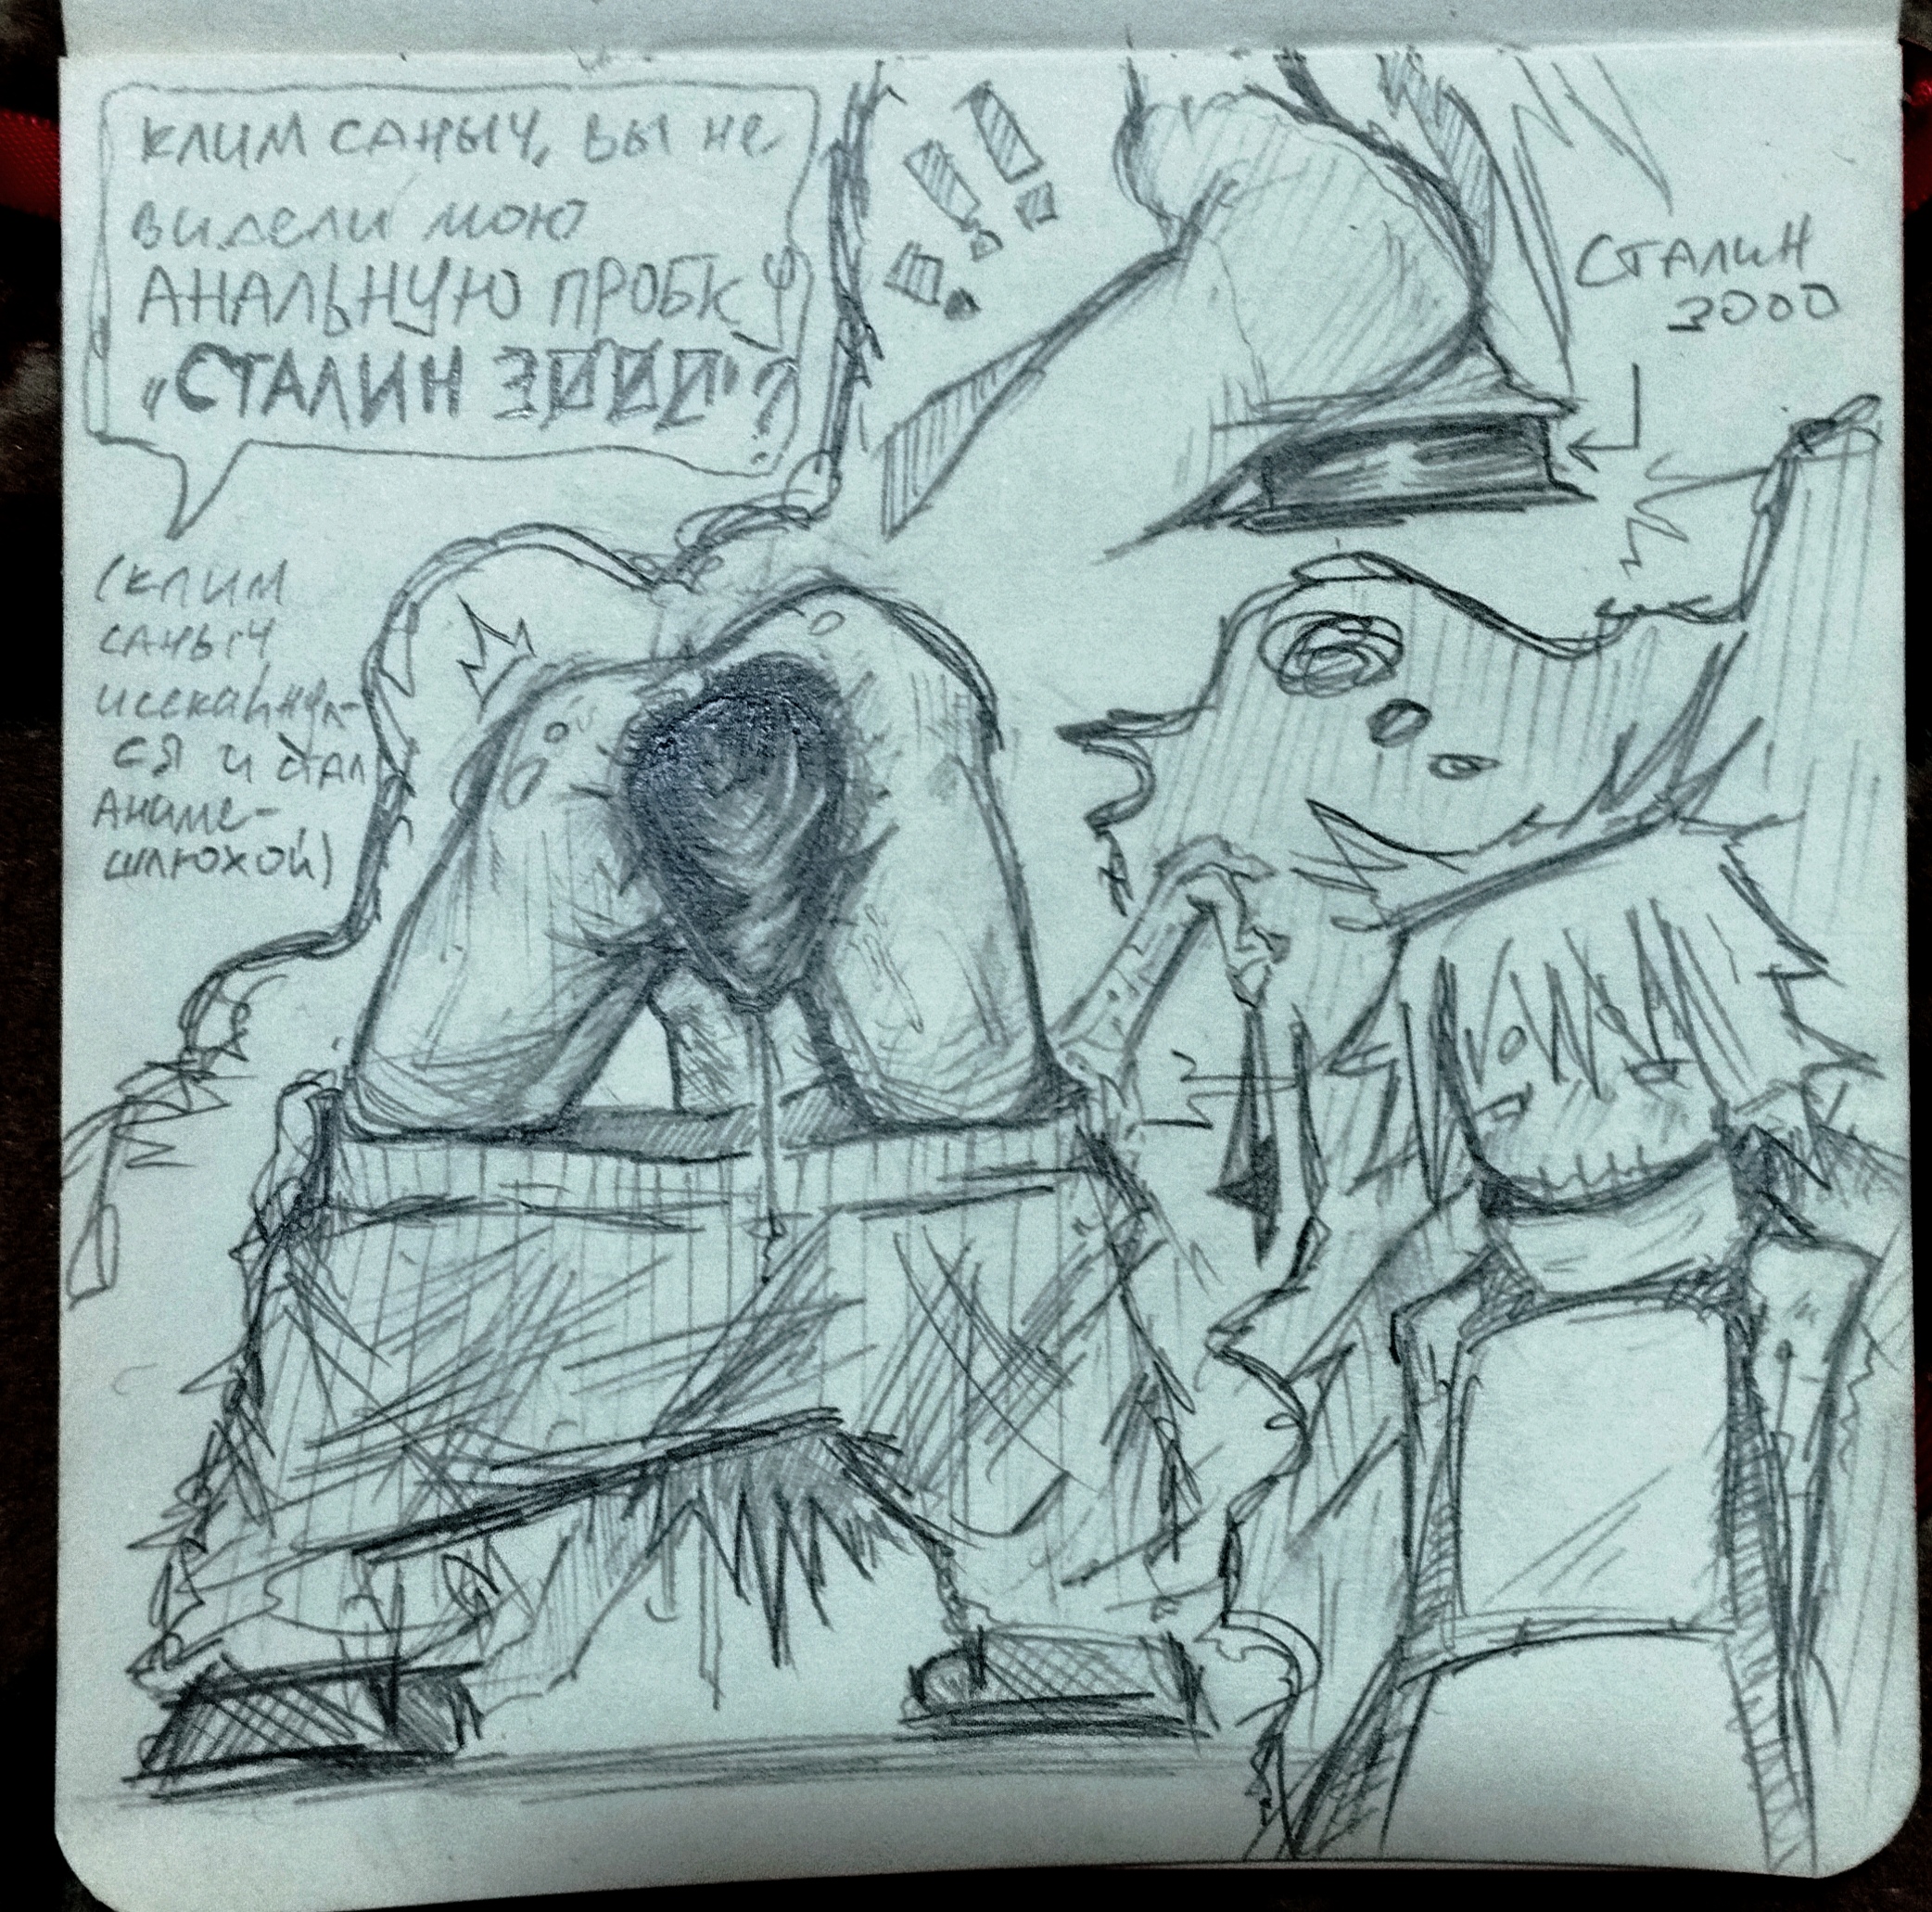 КЛИМ САНЫЧ, ВЫ НЕ
ВИДЕЛИ МОЮ
АНАЛЬНУЮ ПРОБКУ
„СТАЛИН 3000"?
(КЛИМ
САНЫЧ
ИСЕКАЙНУЛ-
СЯ И СТАЛ
АНИМЕ-
ШЛЮХОЙ)
СТАЛИН
3000